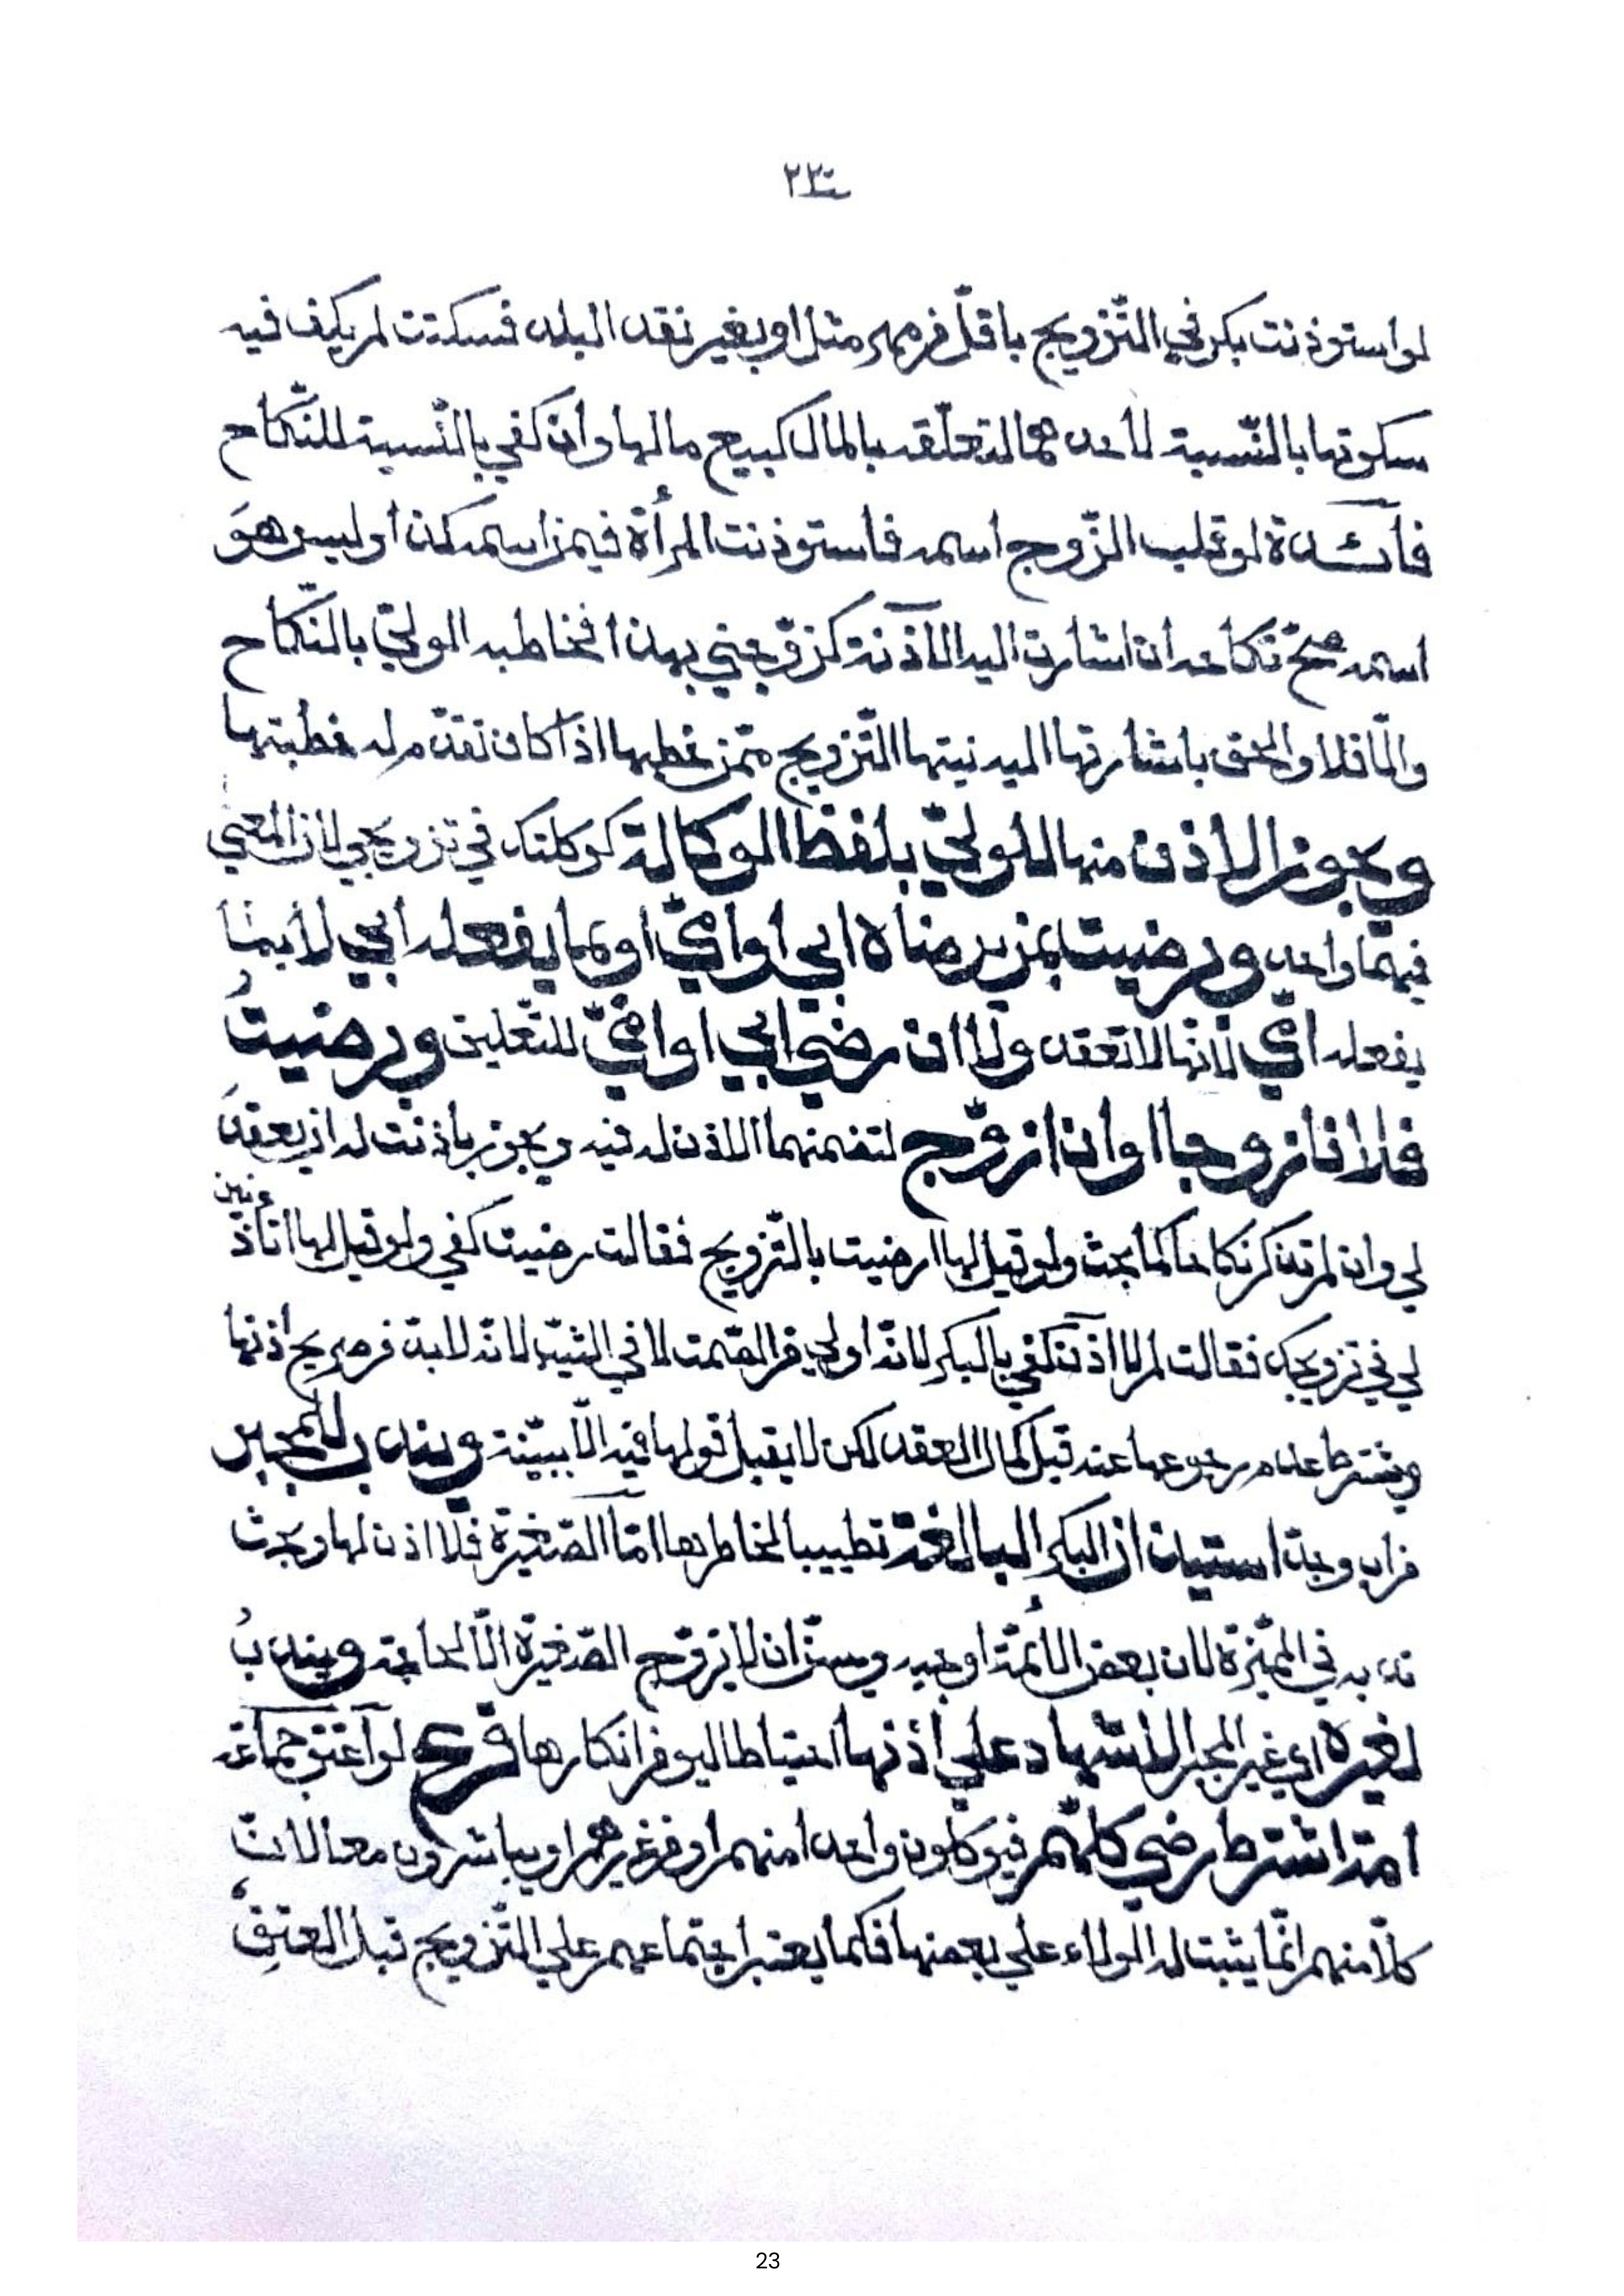 ٢٣
لو استوذنت بكر في التّزويج باقلّ من مهر مثل او بغير نقد البلد فسكتت لم يكف فيه
سكوتها بالنّسبة لأحدهما لتعلّقه بالمال كبيع مالها وان كفي بالنّسبة للنّكاح
فآئدة لو قلب الزّوج اسمه فاستوذنت المرأة فيمن اسمه كذا وليس هوَ
اسمه صحّ نكاحه ان اشارت اليه الآذنة كزوّجني بهذا فخاطبه الوليّ بالنّكاح
والّا فلا والحق باشارتها اليه نيتها التّزويج ممّن خطبها اذا كان تقدّم له خطبتها
ويجوز الاذن منها للوليّ بلفظ الوكالة كوكلتك في تزويجي لانّ المعني
فيهما واحد ورضيت بمن يرضاه ابي او امّي او بما يفعله ابي لا بما
يفعله امّي لأنّها لا تعقد ولا ان رضي ابي او امّي للتّعليق ورضيتُ
فلانا زوجا او ان ازوّج لتضمنهما الاذن له فيه ويجوز باذنت له ان يعقدَ
لي وان لم تذكر نكاحا كما بحث ولو قيل لها ارضيت بالتّزويج فقالت رضيت كفي ولو قيل لها اتأذنين
لي في تزويجك فقالت لم لا اذن كفي بالبكر لانّه اولي من الصّمت لا في الثيّب لانّه لا بدّ من صريح اذنها
ويشترط عدم رجوعها عنه قبل كمال العقد لكن لا يقبل قولها فيه الّا ببيّنة ويندب للمجبر
من اب وجدّ استيذان البكر البالغة تطييبا لخاطرها امّا الصّغيرة فلا اذن لها وبحث
ندبه في المميّزة لان بعض الأئمّة اوجبه ويسنّ ان لا يزوّج الصّغيرة الّا لحاجة ويندبُ
لغيره اي غير المجبر الاشهاد علي اذنها احتياطا ليومن انكارها فرع لو آعتق جماعة
امة اشترط رضي كلّهم فيوكلون واحدا منهم او من غيرهم او يباشرون معا لانّ
كلّا منهم انّما يثبت له الولاء علي بعضها فكما يعتبر اجتماعهم علي التّزويج قبل العتق
23